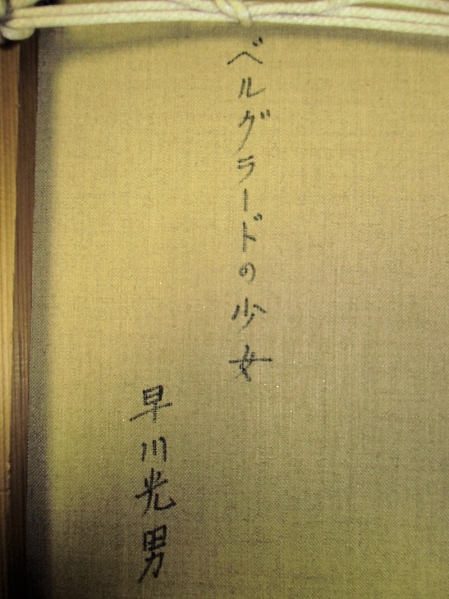 ベルグラードの少女
早川光男